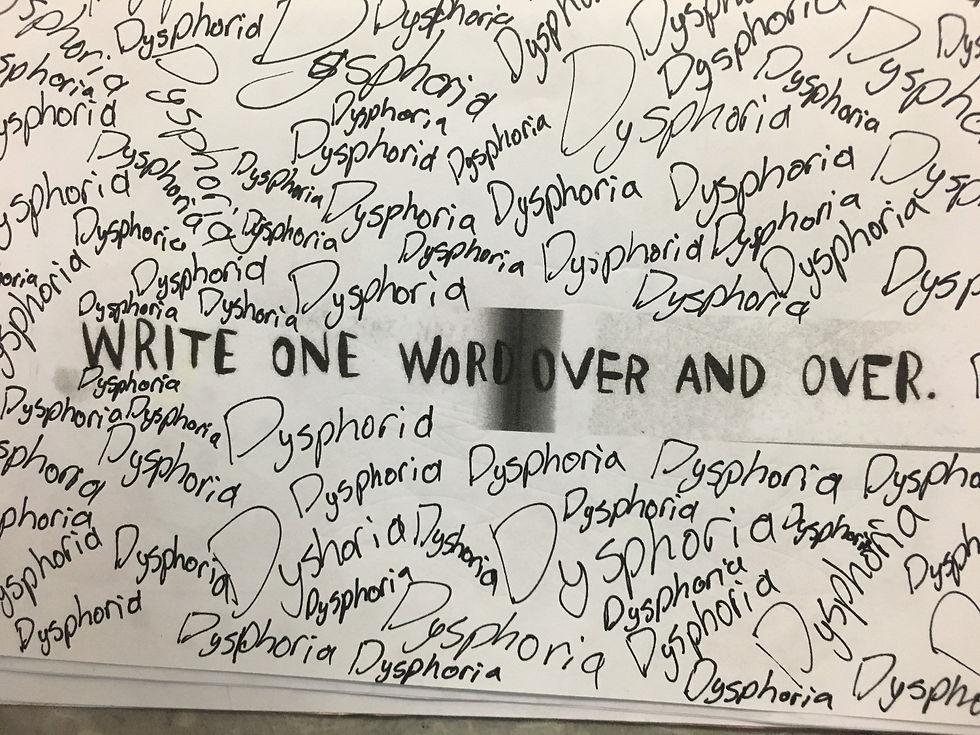 sphoria Dysphoria Dysphoria Dysphoria Dysphoria Dysphoria Dys
sphoria Dysphoria Dysphoria Dysphoria Dysphoria Dysphoria
ysphoria Dysphoria Dysphoria Dysphoria
Dysphoria Dysphoria Dysphoria Dysphoria Dysphoria Dysphoria Dysp
ysphoria Dysphoria Dysphoria Dysphoria Dysphoria Dysphoria
oria Dysphoria Dysphoria Dysphoria Dysphoria Dysphoria Dysp
ysphoria Dysphoria Dyshoria Dysphoria Dysphoria
WRITE ONE WORD OVER AND OVER.
Dysphoria
Dysphoria Dysphoria Dysphoria
sphoria Dysphoria Dysphoria Dysphoria Dysphoria Dyspho
phoria Dyshoria Dyshoria Dysphoria Dysphoria Dysphoria
ysphoria Dysphoria Dysphoria Dysphoria Dysphoria Dysph
Dysphoria Dysphoria Dysphoria Dysphoria
Dysphoria Dysphoria Dyspho